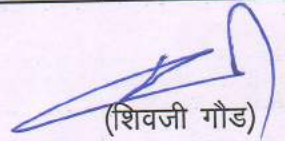 (शिवजी गौड)